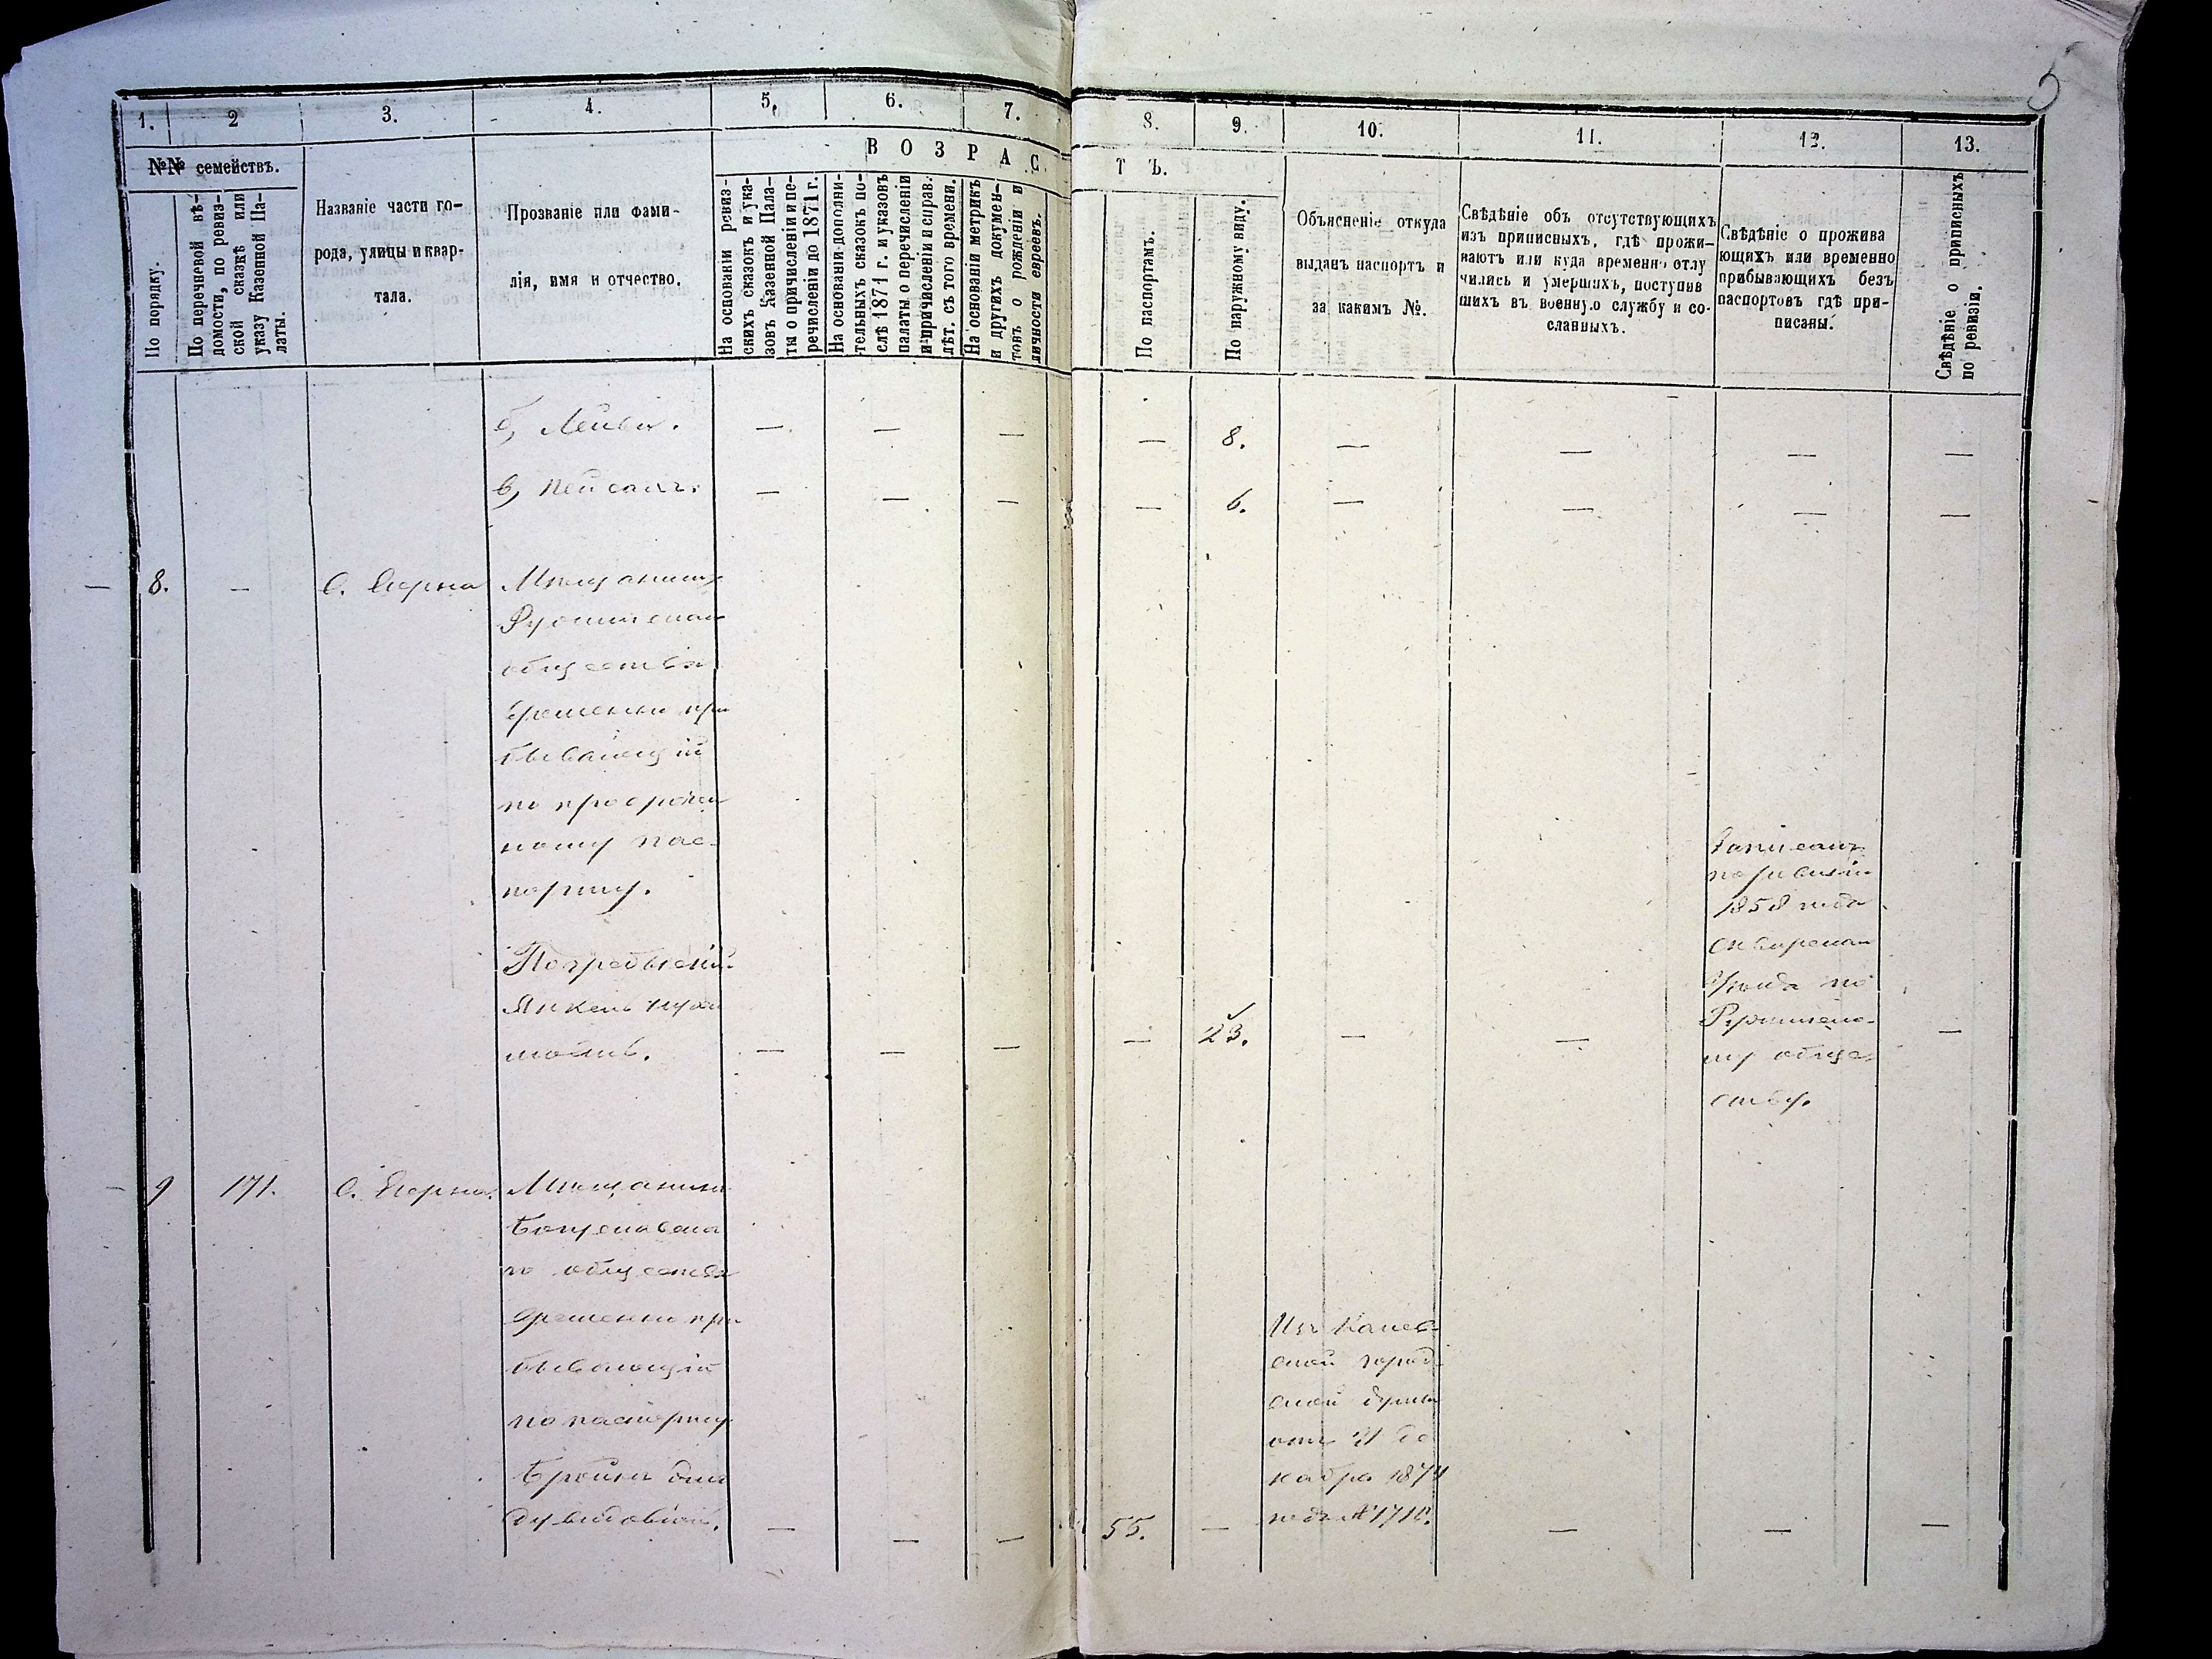 5
1. 2 3. 4. 5. 6. 7. 8. 9. 10. 11. 12. 13.
№№ семействъ.
В О З Р А С Т Ъ.
По порядку.
По перечневой вѣ-
домости, по ревиз-
ской сказкѣ или
указу Казенной Па-
латы.
Названіе части го-
рода, улицы и квар-
тала.
Прозваніе или фами-
лія, имя и отчество.
На основаніи ревиз-
скихъ сказокъ и ука-
зовъ Казенной Пала-
ты о причисленіи и пе-
речисленіи до 1871 г.
На основаніи дополни-
тельныхъ сказокъ по-
слѣ 1871 г. и указовъ
палаты о перечисленіи
и причисленіи и справ.
лѣт. съ того времени.
На основаніи метрикъ
и другихъ докумен-
товъ о рожденіи и
личности евреевъ.
По паспортамъ.
По наружному виду.
Объясненіе откуда
выданъ паспортъ и
за какимъ №.
Свѣдѣніе объ отсутствующихъ
изъ приписныхъ, гдѣ прожи-
ваютъ или куда временно отлу
чились и умершихъ, поступив
шихъ въ военную службу и со-
сланныхъ.
Свѣдѣніе о прожива
ющихъ или временно
прибывающихъ безъ
паспортовъ гдѣ при-
писаны.
Свѣдѣніе о приписныхъ
по ревизіи.
б, Лейба. — — — — 8. — — — —
в, Пейсахъ. — — — — 6. — — — —
— 8. — С. Мѣщанинъ
общества
временно при
бывающій
по просрочен
ному пас-
порту.
Погребыскій
Янкель
— — — — 23. — — —
Записанъ
по ревизіи
1858 года
Сквирскаго
Уѣзда по
обще-
ству.
— 9 171. С. Мѣщанинъ
Богуславска
го общества
временно при
бывающій
по паспорту
Дувидовичъ. — — — 55. — — — —
Изъ Канев-
ской город
ской думы
отъ 21 де
кабря 1874
года №